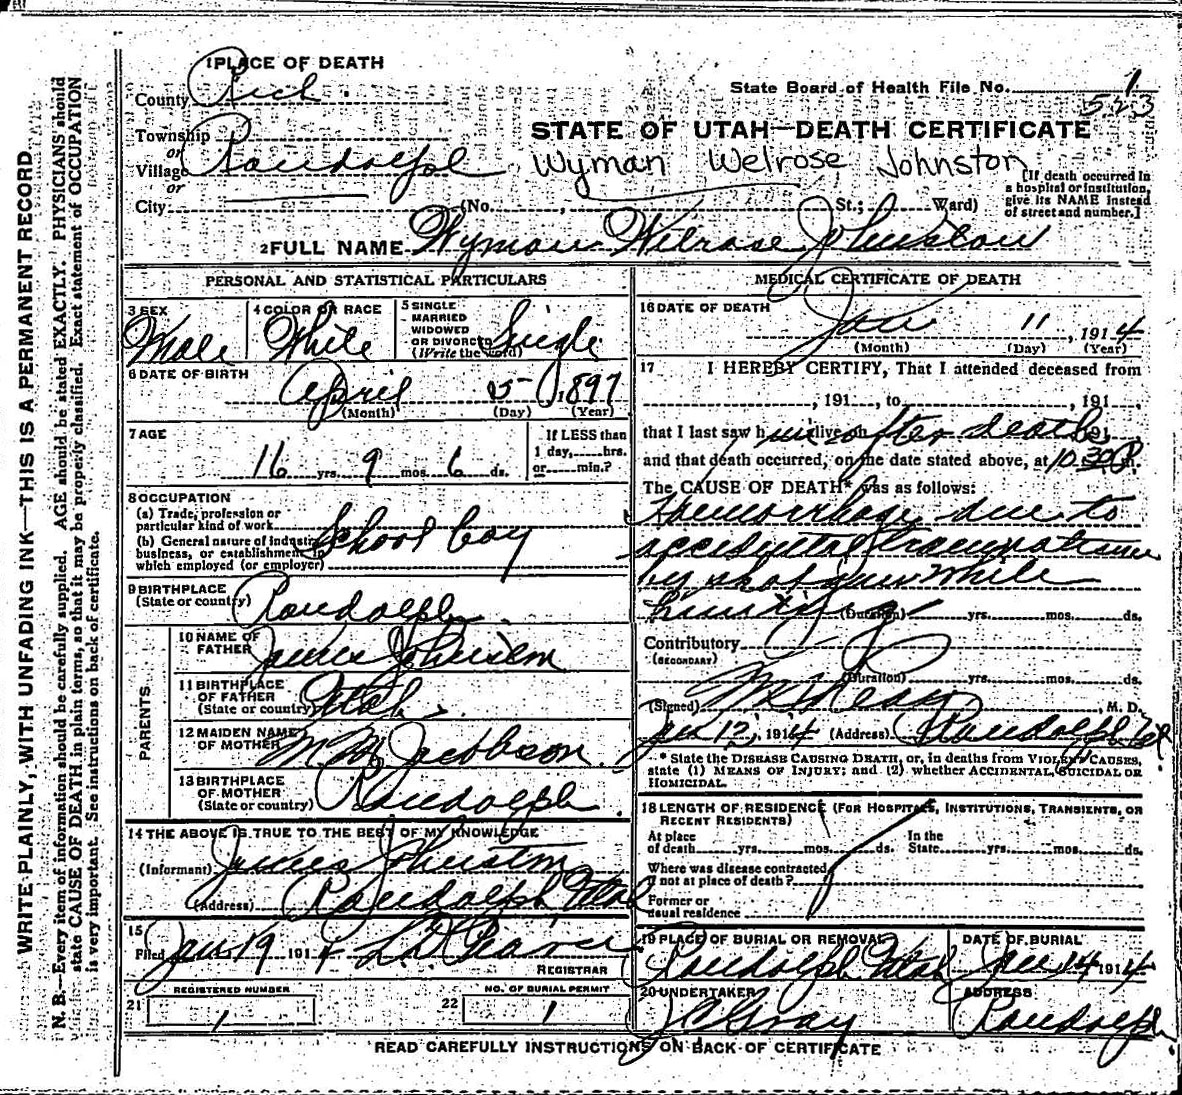 1 PLACE OF DEATH
County Rich
State Board of Health File No. 1
523
Township
or
Village Randolph
or
City (No. , St.; Ward)
STATE OF UTAH—DEATH CERTIFICATE
Wyman Welrose Johnston
[If death occurred in
a hospital or institution,
give its NAME instead
of street and number.]
2 FULL NAME Wyman Welrose Johnston
PERSONAL AND STATISTICAL PARTICULARS
3 SEX Male
4 COLOR OR RACE White
5 SINGLE
MARRIED
WIDOWED
OR DIVORCED
(Write the word) Single
6 DATE OF BIRTH
April 5 1897
(Month) (Day) (Year)
7 AGE
16 yrs. 9 mos. 6 ds.
If LESS than
1 day, hrs.
or min.?
8 OCCUPATION
(a) Trade, profession or
particular kind of work
(b) General nature of industry
business, or establishment in
which employed (or employer)
School boy
9 BIRTHPLACE
(State or country) Randolph
PARENTS
10 NAME OF
FATHER James Johnston
11 BIRTHPLACE
OF FATHER
(State or country) Utah
12 MAIDEN NAME
OF MOTHER Jacobson
13 BIRTHPLACE
OF MOTHER
(State or country) Randolph
14 THE ABOVE IS TRUE TO THE BEST OF MY KNOWLEDGE
(Informant) James Johnston
(Address) Randolph Utah
15
Filed Jan 19 1914 Pearce
REGISTRAR
REGISTERED NUMBER
21 1
NO. OF BURIAL PERMIT
22 1
MEDICAL CERTIFICATE OF DEATH
16 DATE OF DEATH
Jan 11, 1914
(Month) (Day) (Year)
17 I HEREBY CERTIFY, That I attended deceased from
, 191 , to , 191 ,
that I last saw him alive on after death 191
and that death occurred, on the date stated above, at 10.30 P m.
The CAUSE OF DEATH* was as follows:
Hemorrhage due to
accidental traumatism
by shot gun while
hunting
(Duration) yrs. mos. ds.
Contributory
(SECONDARY)
(Duration) yrs. mos. ds.
(Signed) , M. D.
Jan 12, 1914 (Address) Randolph
* State the DISEASE CAUSING DEATH, or, in deaths from VIOLENT CAUSES,
state (1) MEANS OF INJURY; and (2) whether ACCIDENTAL, SUICIDAL OR
HOMICIDAL.
18 LENGTH OF RESIDENCE (FOR HOSPITALS, INSTITUTIONS, TRANSIENTS, OR
RECENT RESIDENTS)
At place
of death yrs. mos. ds.
In the
State yrs. mos. ds.
Where was disease contracted
if not at place of death?
Former or
usual residence
19 PLACE OF BURIAL OR REMOVAL
Randolph Utah
DATE OF BURIAL
Jan 14 1914
20 UNDERTAKER
Gray
ADDRESS
Randolph
READ CAREFULLY INSTRUCTIONS ON BACK OF CERTIFICATE
WRITE PLAINLY, WITH UNFADING INK—THIS IS A PERMANENT RECORD
N. B.—Every item of information should be carefully supplied. AGE should be stated EXACTLY. PHYSICIANS should
state CAUSE OF DEATH in plain forms, so that it may be properly classified. Exact statement of OCCUPATION
is very important. See instructions on back of certificate.